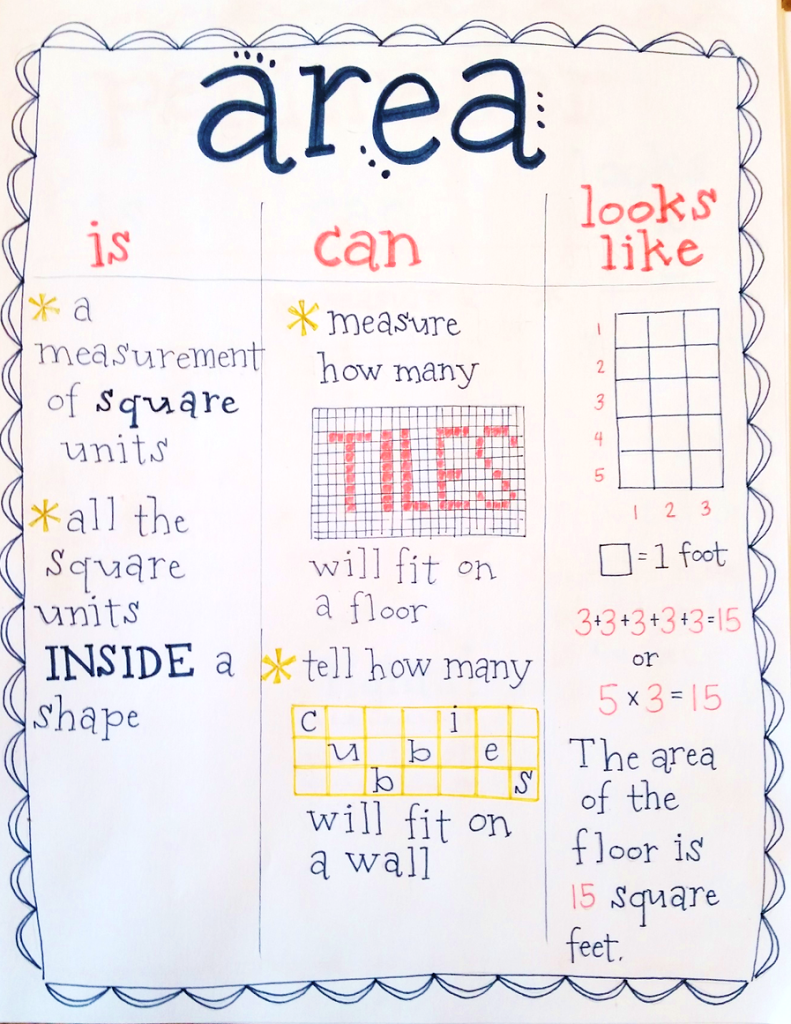 area
is
* a
measurement
of square
units
* all the
square
units
INSIDE a
shape
can
* measure
how many
TILES
will fit on
a floor
* tell how many
c i
u b e
b s
will fit on
a wall
looks
like
1
2
3
4
5
1 2 3
□ = 1 foot
3+3+3+3+3=15
or
5 x 3 = 15
The area
of the
floor is
15 square
feet.